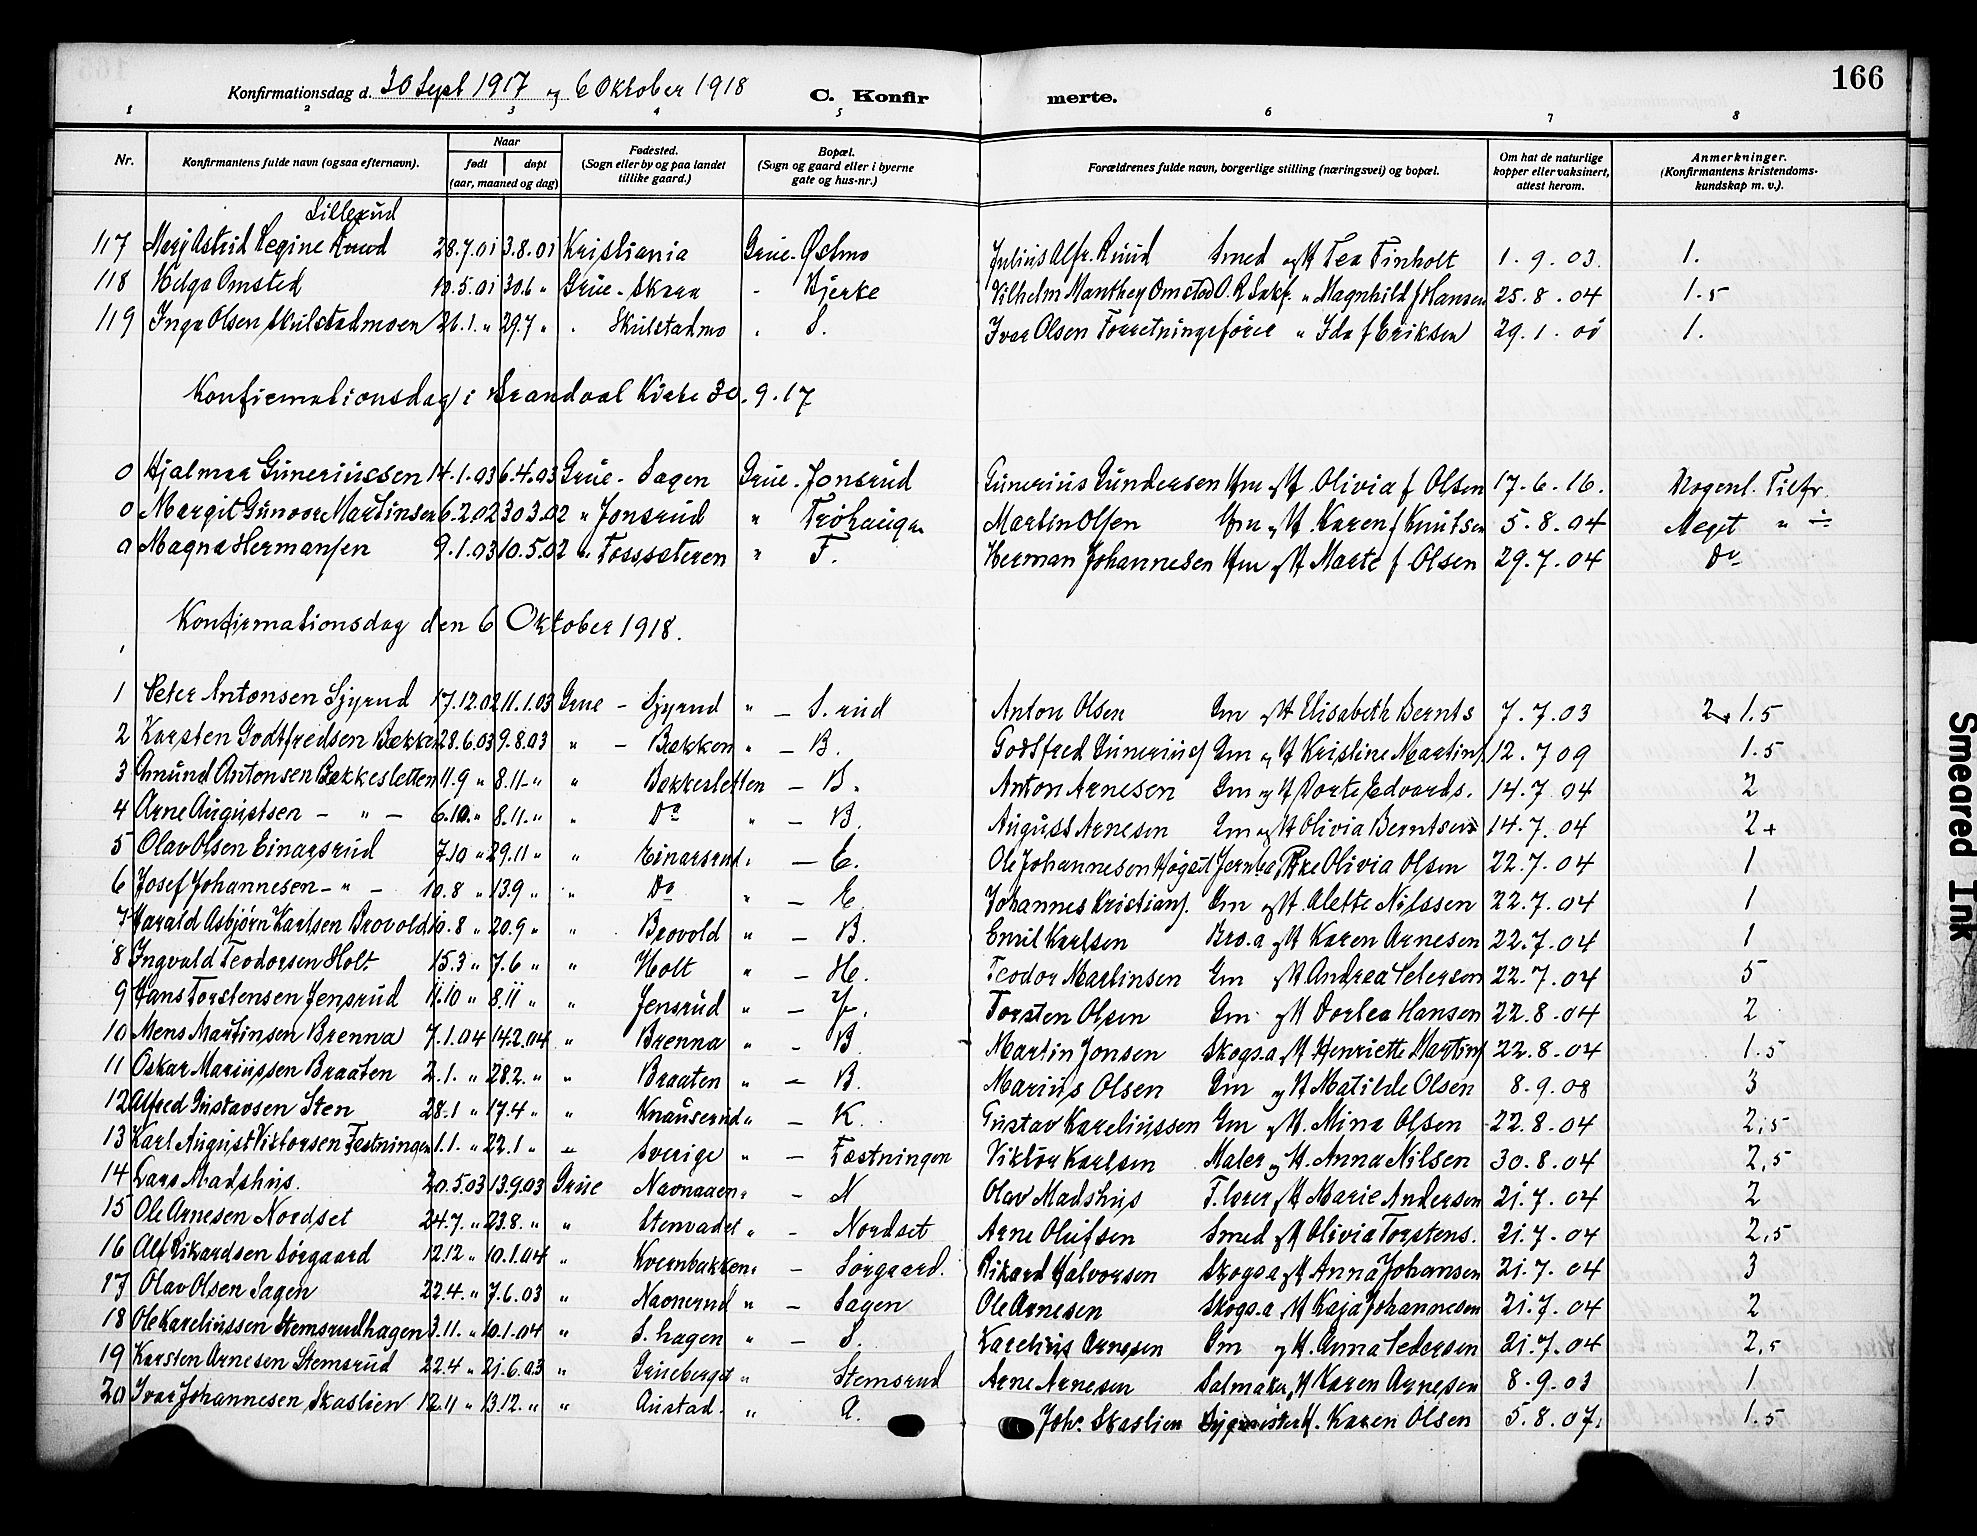 166
Konfirmationsdag d. 30 Sept 1917 og 6 Oktober 1918 C. Konfir merte.
1 2 3 4 5 6 7 8
Nr. Konfirmantens fulde navn (ogsaa efternavn). Naar født døpt (aar, maaned og dag) Fødested. (Sogn eller by og paa landet tillike gaard.) Bopæl. (Sogn og gaard eller i byerne gate og hus-nr.) Forældrenes fulde navn, borgerlige stilling (næringsvei) og bopæl. Om hat de naturlige kopper eller vaksinert, attest herom. Anmerkninger. (Konfirmantens kristendoms-kundskap m. v.).
Lillerud
117 Marj Astrid Regine Ruud 28.7.01 3.8.01 Kristiania Grue - Østmo Julius Alfr. Ruud Smed og H Tea Finholt 1.9.03. 1.
118 Helga Omsted 10.5.01 30.6 " Grue - Skara - Bjerke Vilhelm Manthey Omsted O.R Sakf. " Magnhild f Hansen 25.8.04 1.5
119 Inga Olsen Skulstadmoen 26.1. " 29.7 " " Skulstadmo " S. Ivar Olsen Forretningsfører " Ida f Eriksen 29.1.01 1.
Konfirmationsdag i Brandval Kirke 30.9.17
0 Hjalmar Guneriussen 14.1.03 6.4.03 Grue - Sagen Grue - Jonsrud Gunerius Gundersen Hm og H Olivia f Olsen 17.6.16. Nogenl. Tilfr.
0 Margit Gunvor Martinsen 6.2.02 30.3.02 " Jonsrud " Trøhaugen Martin Olsen Hm og H. Karen f Knutsen 5.8.04 Meget " ÷
0 Magna Hermansen 9.1.03 10.5.02 " Fosssæteren " F. Herman Johannesen Hm og H Marte f Olsen 29.7.04 Do
Konfirmationsdag den 6 Oktober 1918.
1 Peter Antonsen Sjyrud 17.12.02 11.1.03 Grue - Sjyrud " - S.rud Anton Olsen Gm og H Elisabeth Bernts 7.7.03 2+ 1.5
2 Karsten Godtfredsen Bækken 28.6.03 9.8.03 " - Bækken " - B. Godtfred Guneriusf Gm og H Kristine Martinf 12.7.09 1.5
3 Amund Antonsen Bakkesletten 11.9 " 8.11 - " " Bakkesletten - B. Anton Arnesen Gm og H Dorte Edvards. 14.7.04 2
4 Arne Augustsen - " - 6.10. " 8.11. " " Do " - B. August Arnesen Gm og H Olivia Berntsen 14.7.04 2+
5 Olav Olsen Einarsrud 7.10 " 29.11 " " Einarsrud " - E. Ole Johannesen Høgset Jernba Olivia Olsen 22.7.04 1
6 Josef Johannesen - " - 10.8 " 13.9 " " Do " - E. Johannes Kristiansf. Gm og H. Alette Nilssen 22.7.04 1
7 Harald Asbjørn Karlsen Brovold 10.8 " 20.9 " " Brovold " - B. Emil Karlsen Bro.a og H Karen Arnesen 22.7.04 1
8 Ingvald Teodorsen Holt 15.3 " 7.6 " " Holt " - H. Teodor Martinsen Gm og H Andrea Petersen 22.7.04 5
9 Hans Torstensen Jensrud 11.10 " 8.11 " " Jensrud " - J. Torsten Olsen Gm og H Dortea Hansen 22.8.04 2
10 Mens Martinsen Brenna 7.1.04 14.2.04 " Brenna " - B Martin Jonsen Skogs.a og H Henriette Martinf 22.8.04 1.5
11 Oskar Mariussen Braaten 2.1. " 28.2. " " Braaten " - B. Marius Olsen Gm og H Matilde Olsen 8.9.08 3
12 Alfred Gustavsen Sten 28.1 " 17.4 " " Knauserud " - K. Gustav Kareliussen Gm og H. Mina Olsen 22.8.04 2,5
13 Karl August Viktorsen Fæstningen 1.1. " 22.1 " " Sverige " - Fæstningen Viktor Karlsen Maler og H. Anna Nilsen 30.8.04 2,5
14 Lars Madshus. 20.5.03 13.9.03 Grue Navnaaen " - N Olav Madshus F.lærer og H Marie Andersen 21.7.04 2
15 Ole Arnesen Nordset 24.7. " 23.8. " " Stenvadet " - Nordset Arne Olufsen Smed og H Olivia Torstens. 21.7.04 2,5
16 Alf Rikardsen Sørgaard 12.12 " 10.1.04 " Kvernbakken " - Sørgaard. Rikard Halvorsen Skogs.a og H Anna Johansen 21.7.04 3
17 Olav Olsen Sagen 22.4. " 7.6.03 " Navnerud " - Sagen Ole Arnesen Skogs.a H Kaja Johannesen 21.7.04 2
18 Ole Kareliussen Stemsrudhagen 3.11. " 10.1.04 " S.hagen " - S. Karelius Arnesen Gm og H. Anna Pedersen 21.7.04 2,5
19 Karsten Arnesen Stemsrud 22.4 " 21.6.03 " Grueberget " Stemsrud Arne Arnesen Salmaker H Karen Arnesen 8.9.03 1
20 Ivar Johannesen Skaslien 12.11 " 13.12. " " Austad. " A. Joh. Skaslien H. Karen Olsen 5.8.07. 1.5
Smeared Ink